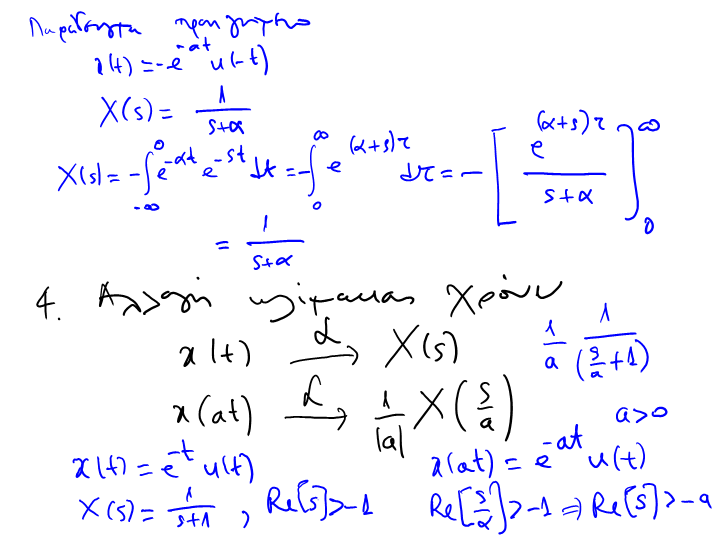 x(t) = -e^{-at} u(-t)
X(s) = \frac{1}{s+α}
X(s) = -\int_{-∞}^{0} e^{-αt} e^{-st} dt = -\int_{0}^{∞} e^{(α+s)τ} dτ = -\left[ \frac{e^{(α+s)τ}}{s+α} \right]_{0}^{∞}
= \frac{1}{s+α}
4. Αλλαγή κλίμακας χρόνου
x(t) \xrightarrow{L} X(s) \frac{1}{a} \frac{1}{(\frac{s}{a}+1)}
x(at) \xrightarrow{L} \frac{1}{|a|} X(\frac{s}{a}) a>0
x(t) = e^{-t} u(t) x(at) = e^{-at} u(t)
X(s) = \frac{1}{s+1} , Re[s]>-1 Re[\frac{s}{α}]>-1 ⇒ Re[s]>-a